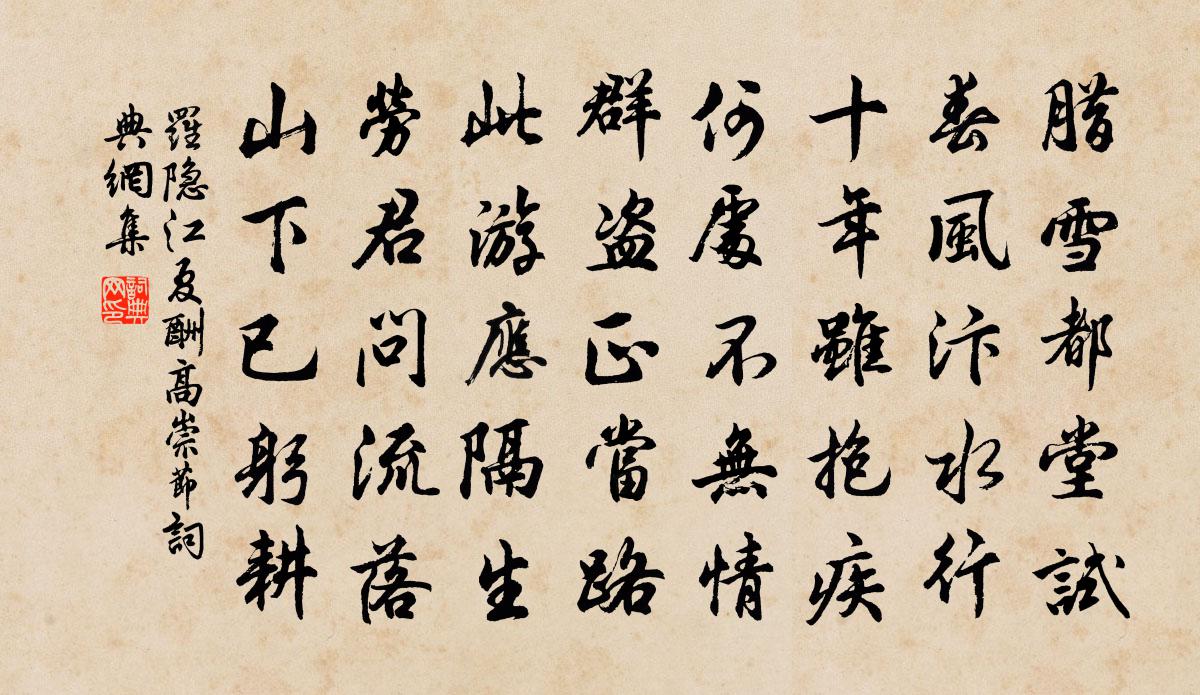 臘雪都堂試
春風汴水行
十年雖抱疾
何處不無情
群盗正當路
此游應隔生
勞君問流落
山下已躬耕
羅隐江夏酬高崇節詞
典網集
詞典網印